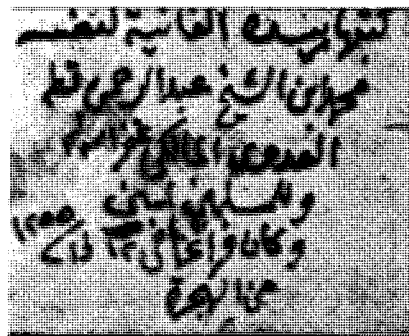 كتبها بيده الفانية لنفسه
محمد ابن الشيخ عبد الرحمن قطه
العدوى المالكى غفر الله له
وللمسلمين امين
وكان فراغها فى ١٢ ذا سنة ١٢٥٥
من الهجرة